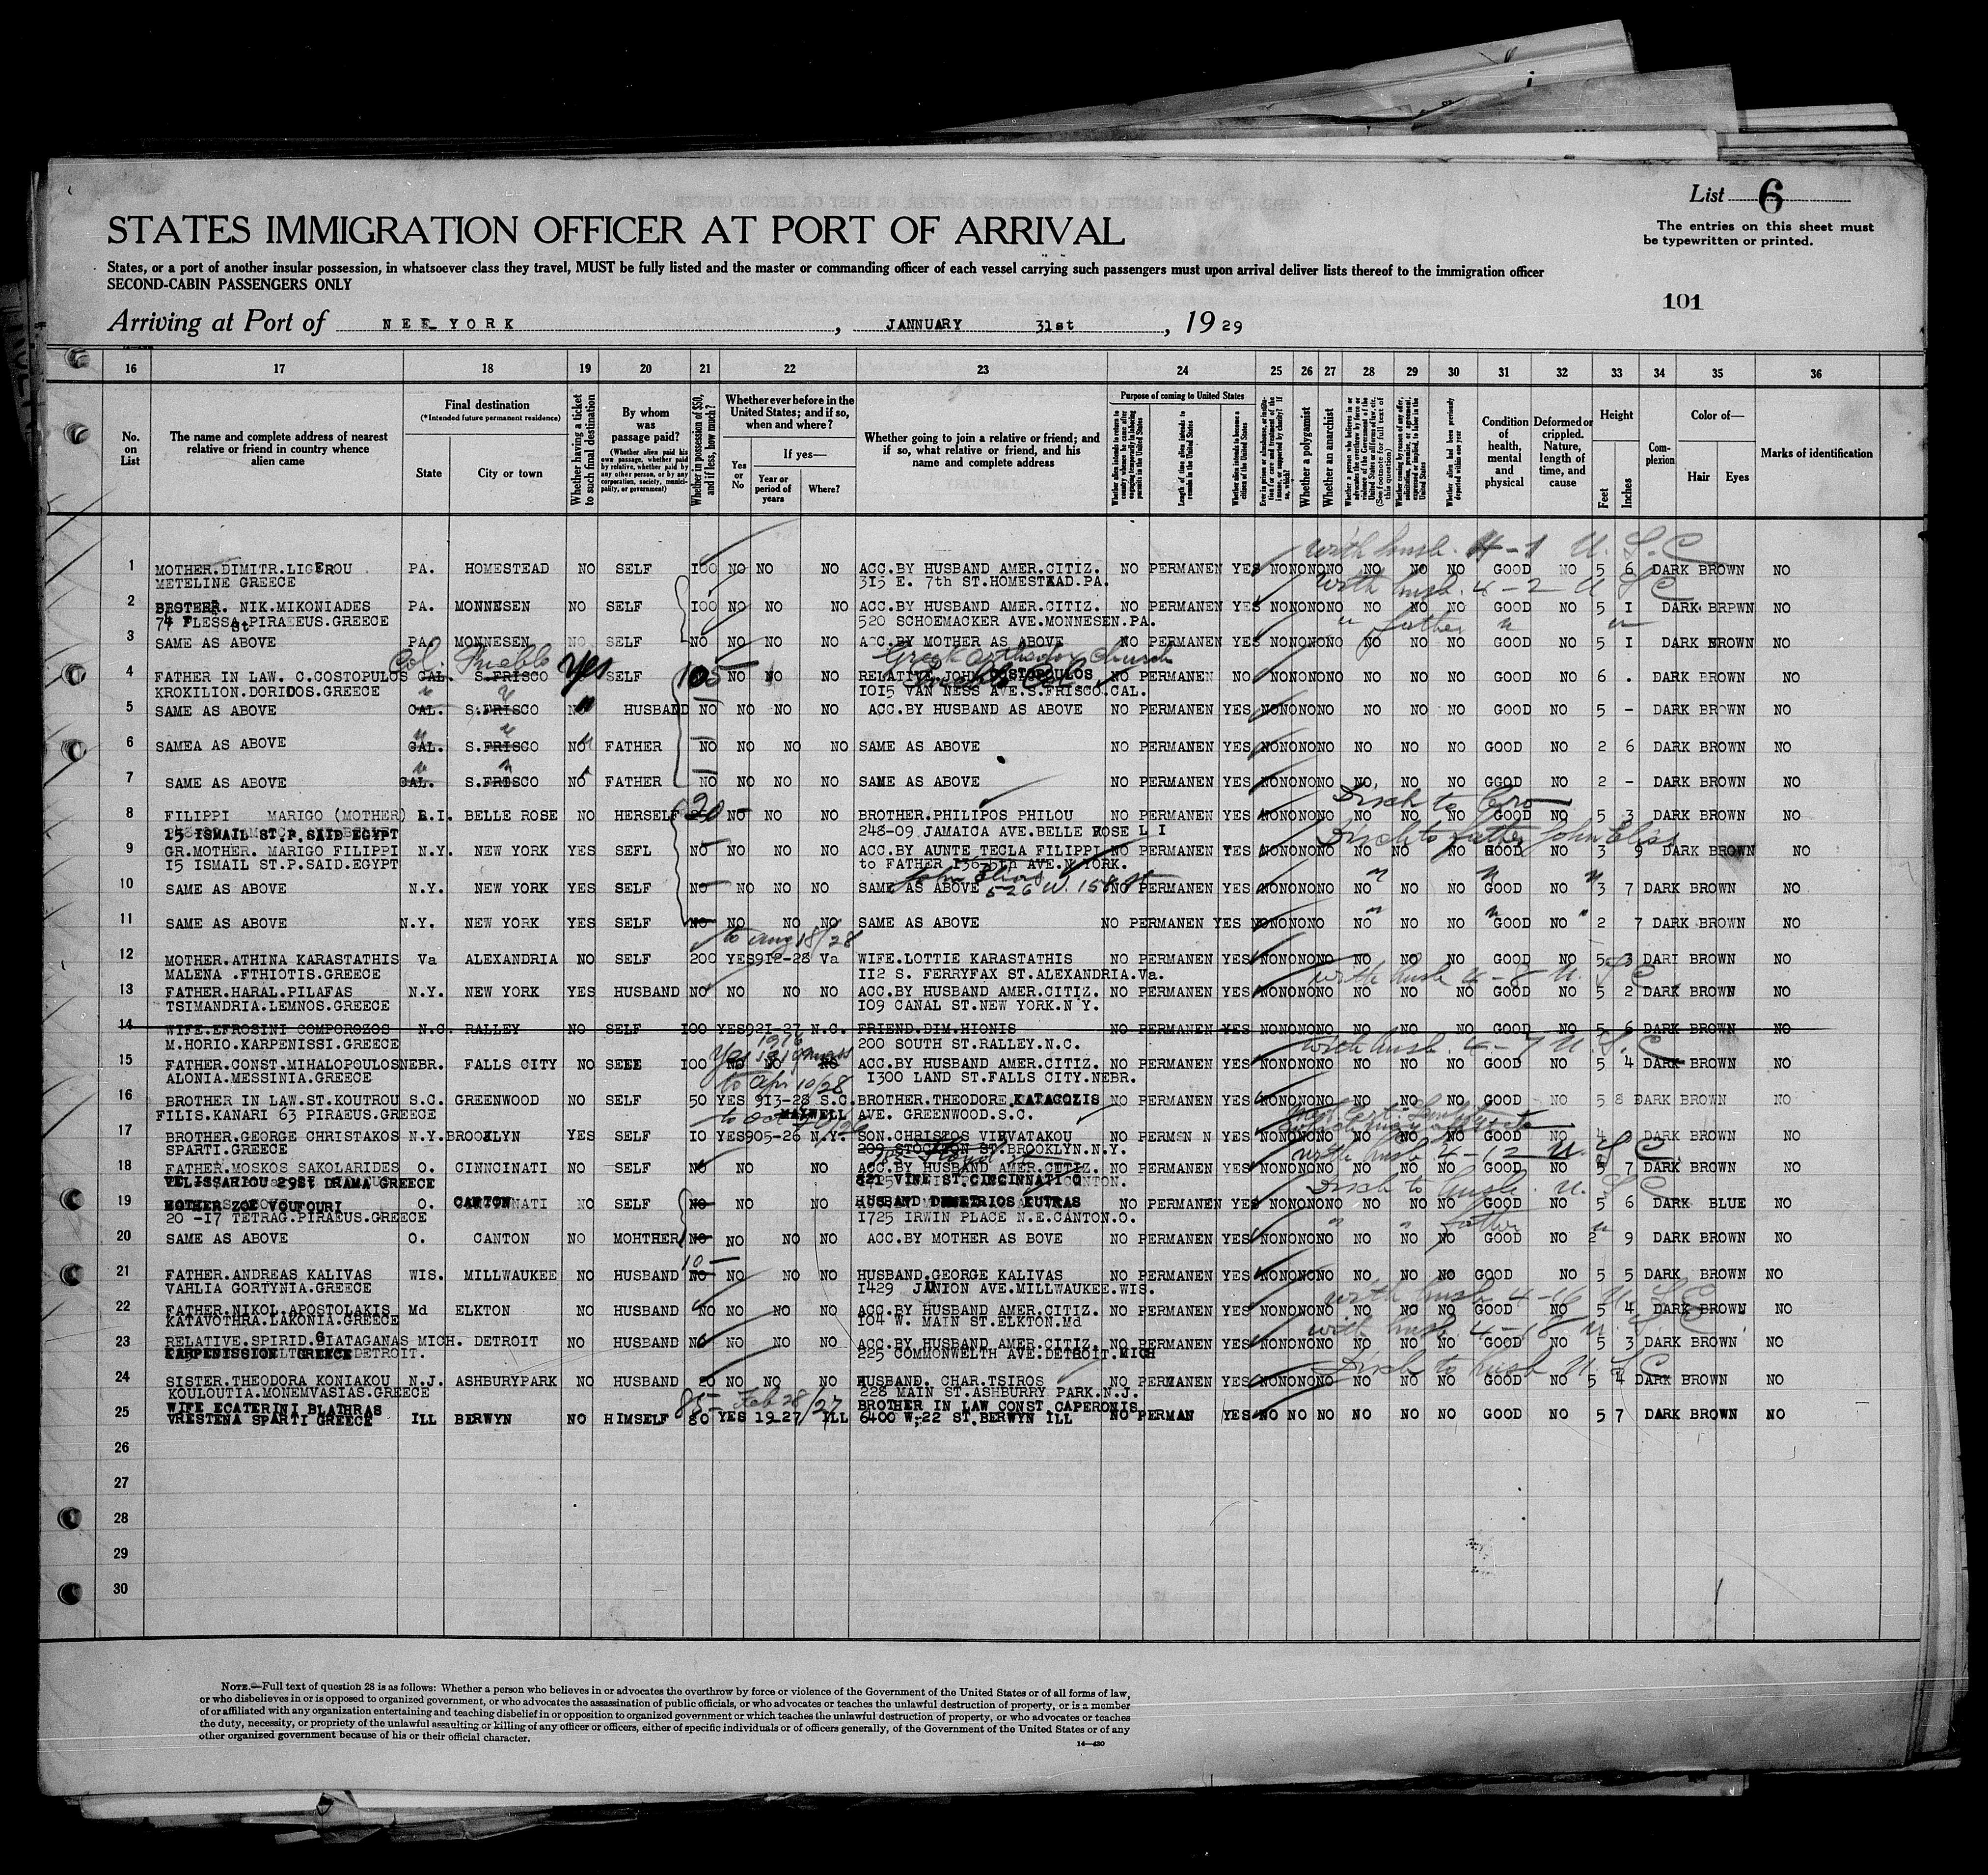 List 6
The entries on this sheet must
be typewritten or printed.
STATES IMMIGRATION OFFICER AT PORT OF ARRIVAL
States, or a port of another insular possession, in whatsoever class they travel, MUST be fully listed and the master or commanding officer of each vessel carrying such passengers must upon arrival deliver lists thereof to the immigration officer
SECOND-CABIN PASSENGERS ONLY
101
Arriving at Port of NEE YORK, JANNUARY 31st, 1929
16 17 18 19 20 21 22 23 24 25 26 27 28 29 30 31 32 33 34 35 36
No. on List
The name and complete address of nearest relative or friend in country whence alien came
Final destination
(*Intended future permanent residence)
State
City or town
Whether having a ticket to such final destination
By whom was passage paid?
(Whether alien paid his own passage, whether paid by relative, whether paid by any other person, or by any corporation, society, municipality, or government)
Whether in possession of $50, and if less, how much?
Whether ever before in the United States; and if so, when and where?
If yes—
Yes or No
Year or period of years
Where?
Whether going to join a relative or friend; and if so, what relative or friend, and his name and complete address
Purpose of coming to United States
Whether alien intends to return to country whence he came after engaging temporarily in laboring pursuits in the United States
Length of time alien intends to remain in the United States
Whether alien intends to become a citizen of the United States
Whether a polygamist
Whether an anarchist
Condition of health, mental and physical
Deformed or crippled. Nature, length of time, and cause
Height
Feet
Inches
Complexion
Color of—
Hair
Eyes
Marks of identification
with husb. 4-1 U.S.C
1 MOTHER.DIMITR.LIGEROU PA. HOMESTEAD NO SELF 100 NO NO NO ACC.BY HUSBAND AMER.CITIZ. NO PERMANEN YES NO NO NO NO NO NO NO GOOD NO 5 6 DARK BROWN NO
METELINE GREECE 315 E. 7th ST.HOMESTEAD.PA.
with husb. 4-2 U S C
2 NIK.MIKONIADES PA. MONNESEN NO SELF 100 NO NO NO ACC.BY HUSBAND AMER.CITIZ. NO PERMANEN YES NO NO NO NO NO NO NO GOOD NO 5 I DARK BRPWN NO
PLESSA St PIRAEEUS.GREECE 520 SCHOEMACKER AVE.MONNESEN.PA.
" father " "
3 SAME AS ABOVE PA. MONNESEN NO SELF NO NO NO NO ACC.BY MOTHER AS ABOVE NO PERMANEN YES NO NO NO NO NO NO NO GOOD NO 5 I DARK BROWN NO
Col. Pueblo Yes Greek Orthodox Church
4 FATHER IN LAW. C.COSTOPULOS CAL. S.FRISCO SELF 105 NO NO NO RELATIVE.JOHN COSTOPOULOS NO PERMANEN NO NO NO NO NO NO NO NO GOOD NO 6 . DARK BROWN NO
KROKILION.DORIDOS.GREECE 1015 VAN NESS AVE.S.FRISCO.CAL.
5 SAME AS ABOVE CAL. S.FRISCO NO HUSBAND NO NO NO NO ACC.BY HUSBAND AS ABOVE NO PERMANEN YES NO NO NO NO NO NO NO GOOD NO 5 - DARK BROWN NO
6 SAMEA AS ABOVE CAL. S.FRISCO NO FATHER NO NO NO NO SAME AS ABOVE NO PERMANEN YES NO NO NO NO NO NO NO GOOD NO 2 6 DARK BROWN NO
7 SAME AS ABOVE CAL. S.FRISCO NO FATHER NO NO NO NO SAME AS ABOVE NO PERMANEN YES NO NO NO NO NO NO NO GOOD NO 2 - DARK BROWN NO
Disch to Bro
8 FILIPPI MARIGO (MOTHER) R.I. BELLE ROSE NO HERSELF 20 NO NO NO BROTHER.PHILIPOS PHILOU NO PERMANEN YES NO NO NO NO NO NO NO GOOD NO 5 3 DARK BROWN NO
15 ISMAIL ST.P.SAID EGYPT 248-09 JAMAICA AVE.BELLE ROSE L I
Disch to father John Elias
9 GR.MOTHER. MARIGO FILIPPI N.Y. NEW YORK YES SEFL NO NO NO NO ACC.BY AUNTE TECLA FILIPPI NO PERMANEN YES NO NO NO NO NO NO NO GOOD NO 3 9 DARK BROWN NO
15 ISMAIL ST.P.SAID.EGYPT to FATHER AVE.N.YORK.
John Elias 526 W. 158 St
10 SAME AS ABOVE N.Y. NEW YORK YES SELF NO NO NO NO SAME AS ABOVE NO PERMANEN YES NO NO NO NO NO NO NO GOOD NO 3 7 DARK BROWN NO
11 SAME AS ABOVE N.Y. NEW YORK YES SELF NO NO NO NO SAME AS ABOVE NO PERMANEN YES NO NO NO NO NO NO NO GOOD NO 2 7 DARK BROWN NO
to aug 18/28
12 MOTHER.ATHINA KARASTATHIS Va ALEXANDRIA NO SELF 200 YES 912-28 Va WIFE.LOTTIE KARASTATHIS NO PERMANEN YES NO NO NO NO NO NO NO GOOD NO 5 3 DARI BROWN NO
MALENA .FTHIOTIS.GREECE 112 S. FERRYFAX ST.ALEXANDRIA.Va.
with husb 4-8 U.S C
13 FATHER.HARAL.PILAFAS N.Y. NEW YORK YES HUSBAND NO NO NO NO ACC.BY HUSBAND AMER.CITIZ. NO PERMANEN YES NO NO NO NO NO NO NO GOOD NO 5 2 DARK BROWN NO
TSIMANDRIA.LEMNOS.GREECE 109 CANAL ST.NEW YORK.N Y.
14 WIFE.EFROSINI COMPOROZOS N.C. RALLEY NO SELF 100 YES 921-27 N.C. FRIEND.DIM.HIONIS NO PERMANEN YES NO NO NO NO NO NO NO GOOD NO 5 6 DARK BROWN NO
M.HORIO.KARPENISSI.GREECE 200 SOUTH ST.RALLEY.N.C.
with husb. 4-7 U.S.C
15 FATHER.CONST.MIHALOPOULOS NEBR. FALLS CITY NO SELF 100 NO NO NO ACC.BY HUSBAND AMER.CITIZ. NO PERMANEN YES NO NO NO NO NO NO NO GOOD NO 5 4 DARK BROWN NO
ALONIA.MESSINIA.GREECE 1300 LAND ST.FALLS CITY.NEBR.
to Apr 10/28
16 BROTHER IN LAW.ST.KOUTROU S.C. GREENWOOD NO SELF 50 YES 913-28 S.C. BROTHER.THEODORE KATACOZIS NO PERMANEN YES NO NO NO NO NO NO NO GOOD NO 5 8 DARK BROWN NO
FILIS.KANARI 63 PIRAEUS.GREECE MAXWELL AVE. GREENWOOD.S.C.
17 BROTHER.GEORGE CHRISTAKOS N.Y. BROOKLYN YES SELF 10 YES 905-26 N.Y. SON.CHRISTOS VIRVATAKOU NO PERMSN N YES NO NO NO NO NO NO NO GOOD NO DARK BROWN NO
SPARTI.GREECE 209 STOCKTON ST.BROOKLYN.N.Y.
with husb 4-12 U.S.C
18 FATHER.MOSKOS SAKOLARIDES O. CINNCINATI NO SELF NO NO NO ACC.BY HUSBAND AMER.CITIZ. NO PERMANEN YES NO NO NO NO NO NO NO GOOD NO 5 7 DARK BROWN NO
VELISSARIOU 29St DRAMA GREECE 821 VINE ST.CINCINNATI O
Disch to husb. U.S C
19 MOTHER ZOE VOUFOURI O. CANTON NO SELF NO NO NO HUSBAND DEMETRIOS KUTRAS NO PERMANEN YES NO NO NO NO NO NO NO GOOD NO 5 6 DARK BLUE NO
20 -17 TETRAG.PIRAEUS.GREECE 1725 IRWIN PLACE N.E.CANTON.O.
" " father "
20 SAME AS ABOVE O. CANTON NO MOHTHER NO NO NO NO ACC.BY MOTHER AS BOVE NO PERMANEN YES NO NO NO NO NO NO NO GOOD NO 2 9 DARK BROWN NO
10
21 FATHER.ANDREAS KALIVAS WIS. MILLWAUKEE NO HUSBAND NO NO NO NO HUSBAND.GEORGE KALIVAS NO PERMANEN YES NO NO NO NO NO NO NO GOOD NO 5 5 DARK BROWN NO
VAHLIA GORTYNIA.GREECE 1429 AVE.MILLWAUKEE.WIS.
with husb 4-16 U.S.C
22 FATHER.NIKOL.APOSTOLAKIS Md ELKTON NO HUSBAND NO NO NO NO ACC.BY HUSBAND AMER.CITIZ. NO PERMANEN YES NO NO NO NO NO NO NO GOOD NO 5 4 DARK BROWN NO
KATAVOTHRA.LAKONIA.GREECE 104 W. MAIN ST.ELKTON.Md
with husb. 4-18 U.S C
23 RELATIVE.SPIRID.GIATAGANAS MICH. DETROIT NO HUSBAND NO NO NO NO ACC.BY HUSBAND AMER.CITIZ. NO PERMANEN YES NO NO NO NO NO NO NO GOOD NO 5 3 DARK BROWN NO
KARPENISSION GREECE 225 COMMONWELTH AVE.DETROIT.MICH
Disch to husb U.S.C
24 SISTER.THEODORA KONIAKOU N.J. ASHBURYPARK NO HUSBAND 20 NO NO NO HUSBAND. CHAR.TSIROS NO PERMANEN YES NO NO NO NO NO NO NO GOOD NO 5 4 DARK BROWN NO
KOULOUTIA.MONEMVASIAS.GREECE 228 MAIN ST.ASHBURRY PARK.N.J.
WIFE ECATERINI BLATHRAS 85 Feb 28/27 BROTHER IN LAW CONST CAPERONIS
25 VRESTENA SPARTI GREECE ILL BERWYN NO HIMSELF 80 YES 19-27 ILL 6400 W;22 ST.BERWYN ILL NO PERMAN YES NO NO NO NO NO NO NO GOOD NO 5 7 DARK BROWN NO
26
27
28
29
30
NOTE.—Full text of question 28 is as follows: Whether a person who believes in or advocates the overthrow by force or violence of the Government of the United States or of all forms of law,
or who disbelieves in or is opposed to organized government, or who advocates the assassination of public officials, or who advocates or teaches the unlawful destruction of property, or is a member
of or affiliated with any organization entertaining and teaching disbelief in or opposition to organized government or which teaches the unlawful destruction of property, or who advocates or teaches
the duty, necessity, or propriety of the unlawful assaulting or killing of any officer or officers, either of specific individuals or of officers generally, of the Government of the United States or of any
other organized government because of his or their official character.
14—430